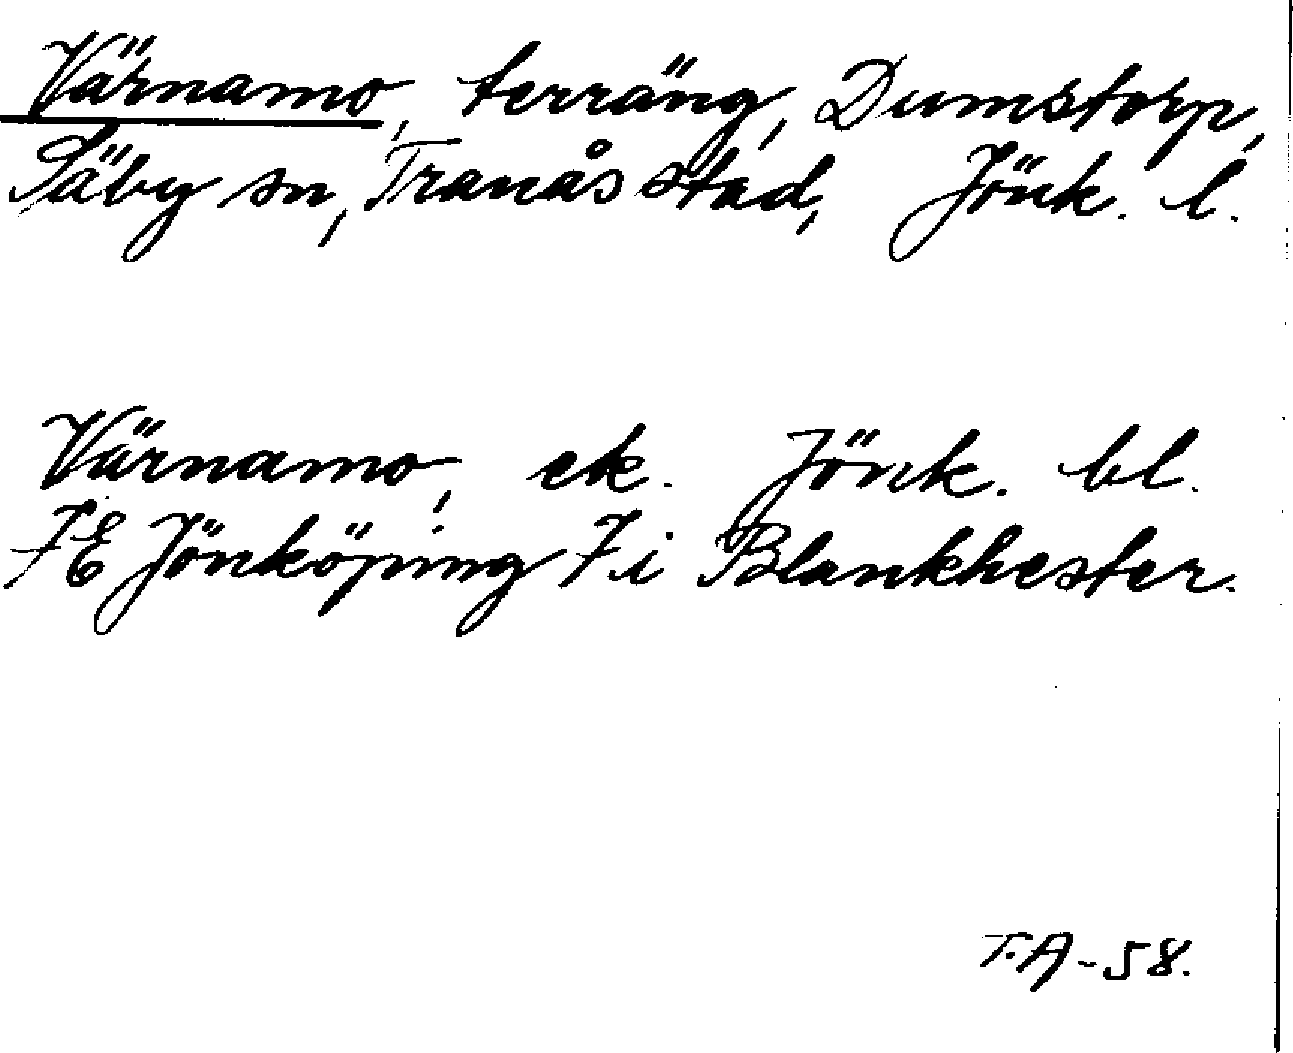 Värnamo, terräng, Dumstorp,
Säby sn, Tranås stad, Jönk. l.
Värnamo, ek. Jönk. bl.
7E Jönköping 7 i Blankhester.
T.A-58.